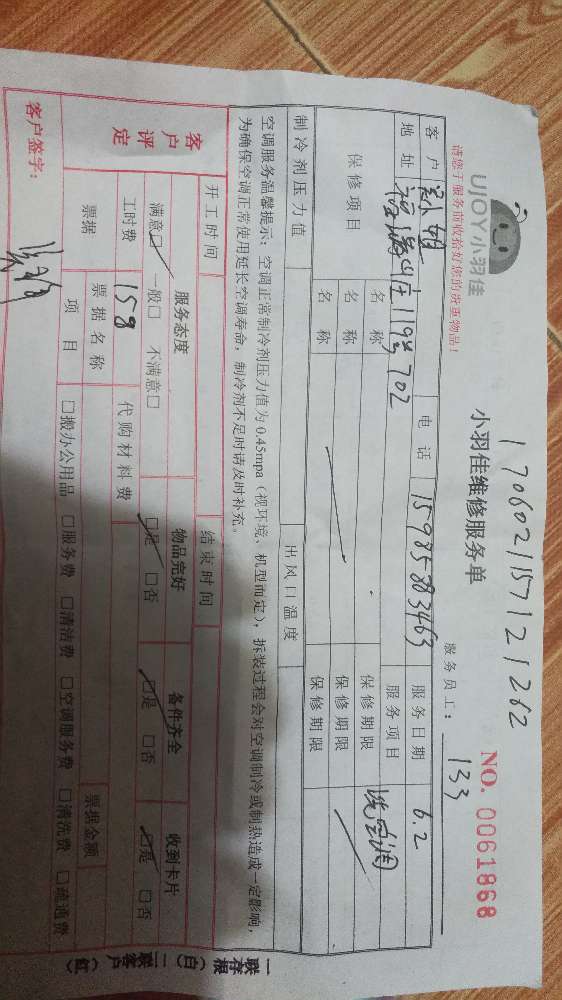 1706021157121262
UJOY小羽佳
小羽佳维修服务单
NO. 0061868
请您于服务前收拾好您的贵重物品!
服务员工: 133
客户 电话 15985883463 服务日期 6.2
地址 119号702 服务项目 洗空调
保修项目 名称 保修期限
名称 保修期限
名称 保修期限
制冷剂压力值 出风口温度
空调服务温馨提示:空调正常制冷剂压力值为0.45mpa(视环境、机型而定),拆装过程会对空调制冷或制热造成一定影响,
为确保空调正常使用延长空调寿命,制冷剂不足时请及时补充。
开工时间 结束时间
客户评定 服务态度 物品完好 备件齐全 收到卡片
满意☑ 一般□ 不满意□ ☑是 □否 ☑是 □否 ☑是 □否
工时费 158 代购材料费
票据 票据名称 票据金额
项目 □搬办公用品 □服务费 □清洁费 □空调服务费 □清洗费 □疏通费
客户签字:
一联存根(白) 二联客户(红)